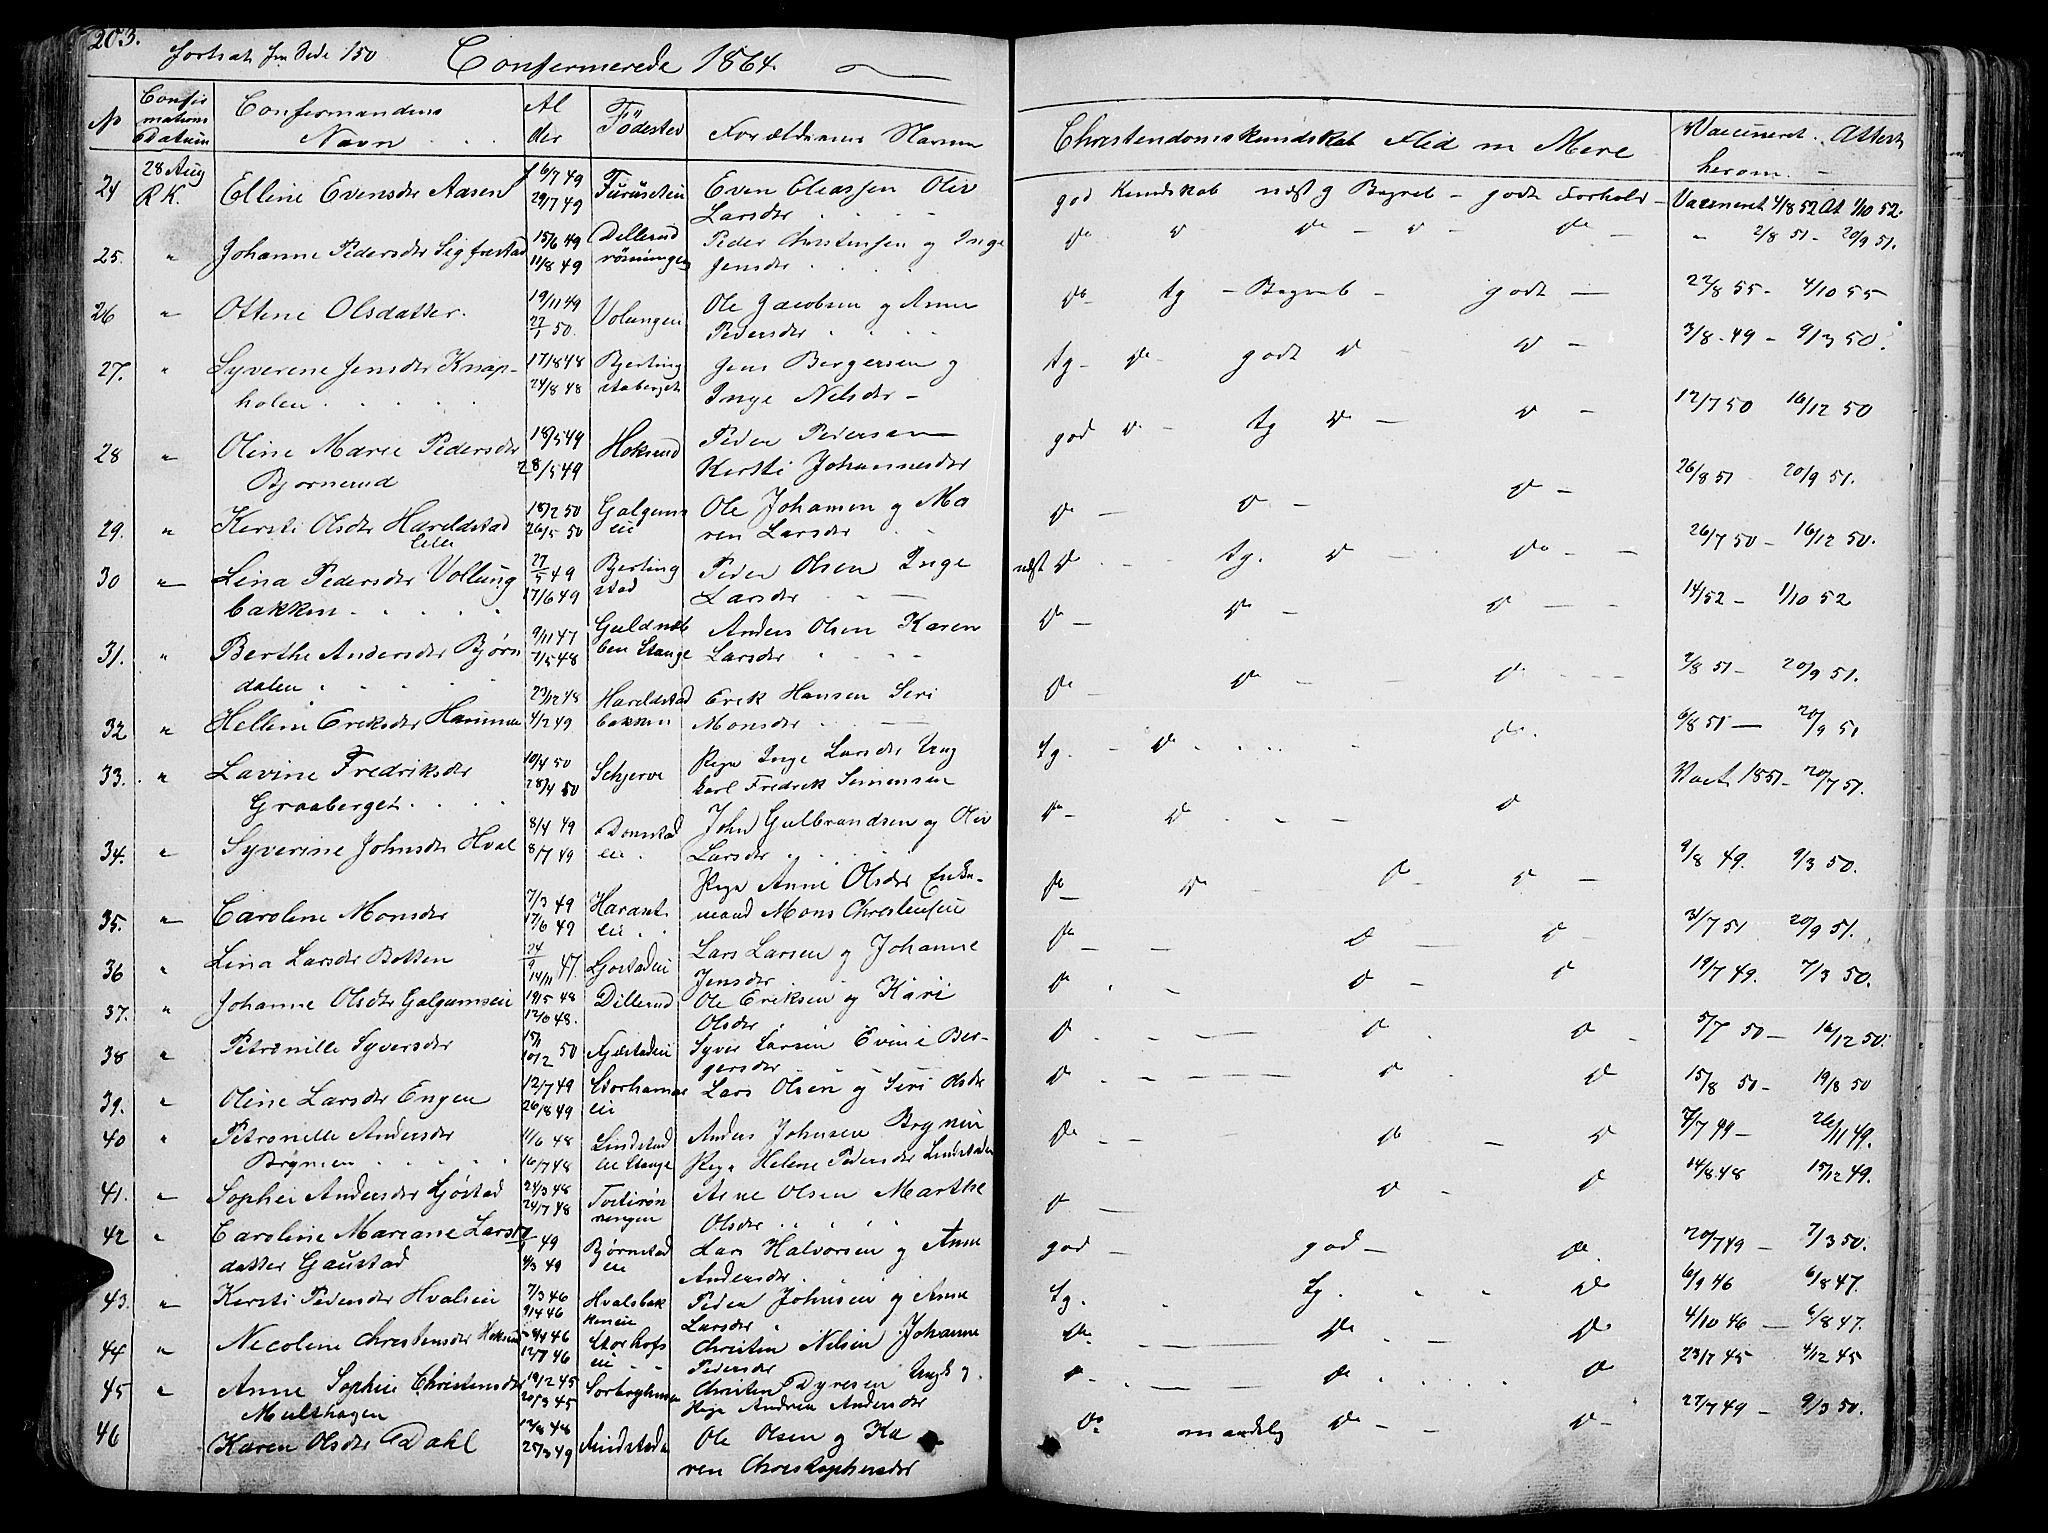 203.
Fortsat fra Side 150 Confermerede 1864.
No Confirmations Datum Confermandens Navn Alder Fødested Forældrenes Navne Christendomskundskab Flid m Mere Vaccineret Attest herom.
24 28 Aug R K. Elline Evensdr Aasen 6/7 49 29/7 49 Furuseteie Even Eliassen Oliv Larsdr god Kundskab god Begreb - godt Forhold - Vaccineret 4/8 52 At 1/10 52.
25. " Johanne Pedersdr Sigfrestad 15/6 49 11/8 49 Dillerud rønningen Peder Christensen og Inge Jensdr Do Do Do " 2/8 51 - 20/9 51.
26 " Ottene Olsdatter. 19/11 49 27/1 50. Volungen Ole Jacobsen og Anne Pedersdr Do tg - Begreb - godt - 22/8 55 - 4/10 55
27. " Syverene Jensdr Knapholen 17/8 48 24/8 48 Bjerkingstaberget Jens Bergersen og Inge Nelsdr - tg - Do godt Do - Do - 3/8 49 - 9/3 50.
28 " Oline Marie Pedersdr Bjørnerud 18/5 49 28/5 49 Hoksrud Peder Pedersen Kersti Johannesdr god Do - tg Do - Do - 12/7 50 16/12 50
29. " Kersti Olsdr Hareldstad lille 18/2 50 26/5 50 Galgumseie Ole Johansen og Maren Larsdr Do - Do - Do - 26/8 51 20/9 51.
30 " Lina Pedersdr Vollungbakken 27/5 49 17/6 49 Berlingstad Peder Olsen Inge Larsdr Do tg. Do - Do - 26/7 50 - 16/12 50.
31. " Berthe Andersdr Bjørndalen 9/11 47 7/5 48 Guldnæbben Stange Anders Olsen Karen Larsdr Do - Do - Do - 14/52 - 1/10 52
32 " Hellene Ereksdr Hammer 23/12 48 4/2 49 Hareldstad bakken Erek Hansen Seri Monsdr Do - Do - Do 2/8 51 - 20/9 51.
33. " Lavine Fredriksdr Graaberget 10/4 50 28/4 50 Schjerve Pige Inge Larsdr Ungkarl Fredrek Simensen tg. - Do Do. 6/8 51 - 20/9 51
34. " Syverine Johnsdr Hval 8/4 49 8/7 49 Domstad eie. John Gulbrandsen og Oliv Larsdr Do - Do Do Vact 1851 - 20/7 51.
35. " Caroline Monsdr 7/3 49 17/6 49 Haramt eie Pige Anne Olsdr Enkemand Mons Christensen Do - Do - Do - Do - 9/8 49. 9/3 50.
36 " Lina Larsdr Botten 24/9 14/11 47. Gostadeie Lars Larsen og Johanne Jensdr Do - Do - Do - 31/7 51 20/9 51.
37. " Johanne Olsdr Galgumseie 19/5 48 12/6 48. Dillerud Ole Eriksen og Kari Olsdr Do - Do - Do 19/7 49. 7/3 50.
38 " Petronille Syversdr 15/1 10/2 50 Njæstadeie Syver Larsen Evine Bergersdr Do - Do Do - 5/7 50 - 16/12 50.
39. " Oline Larsdr Engen 12/7 49 26/8 49 Storhamar eie Lars Olsen og Seri Olsdr Do - Do Do 15/8 50 - 19/8 50
40 " Petronille Andersdr Brynien 11/6 48 16/7 48 Lindstad eie Stange Anders Johnsen Brynien Pige Helene Pedersdr Lindstadeie Do - Do - Do 7/7 49 - 26/11 49.
41. " Sophie Andersdr Gjøstad 24/3 48 24/7 48 Tveterønningen Arne Olsen Marthe Olsdr Do - Do - Do 14/8 48 15/12 49.
42 " Caroline Mariane Larsdatter Gaustad 49 4/3 49 Bjørnstad eie Lars Halvorsen og Anne Andersdr. god - god - Do 20/7 49 - 7/3 50.
43. " Kersti Pedersdr Hvalseie 7/3 46 9/4 46 Hvalsbakkeneie Peder Johnsen og Anne Larsdr tg. tg. Do 6/9 46 6/8 47.
44 " Necoline Chrestensdr Hoksrud 5/4 46 12/7 46 Storhofs eie Christen Nelsen Johanne Pedersdr Do Do Do 4/10 46 - 6/8 47.
45 " Anne Sophie Christensdr Multhagen 18/2 45 20/3 45 Sorberghagen Christen Dyresen Ungk og Pige Andrea Andersdr Do - Do Do 23/7 45 4/12 45
46 Karen Olsdr Dahl 12/8 48 25/3 49 Aindstada Ole Olsen og Karen Chrestophersdr Do maadelig Do - Do - 27/7 49 - 9/3 50.